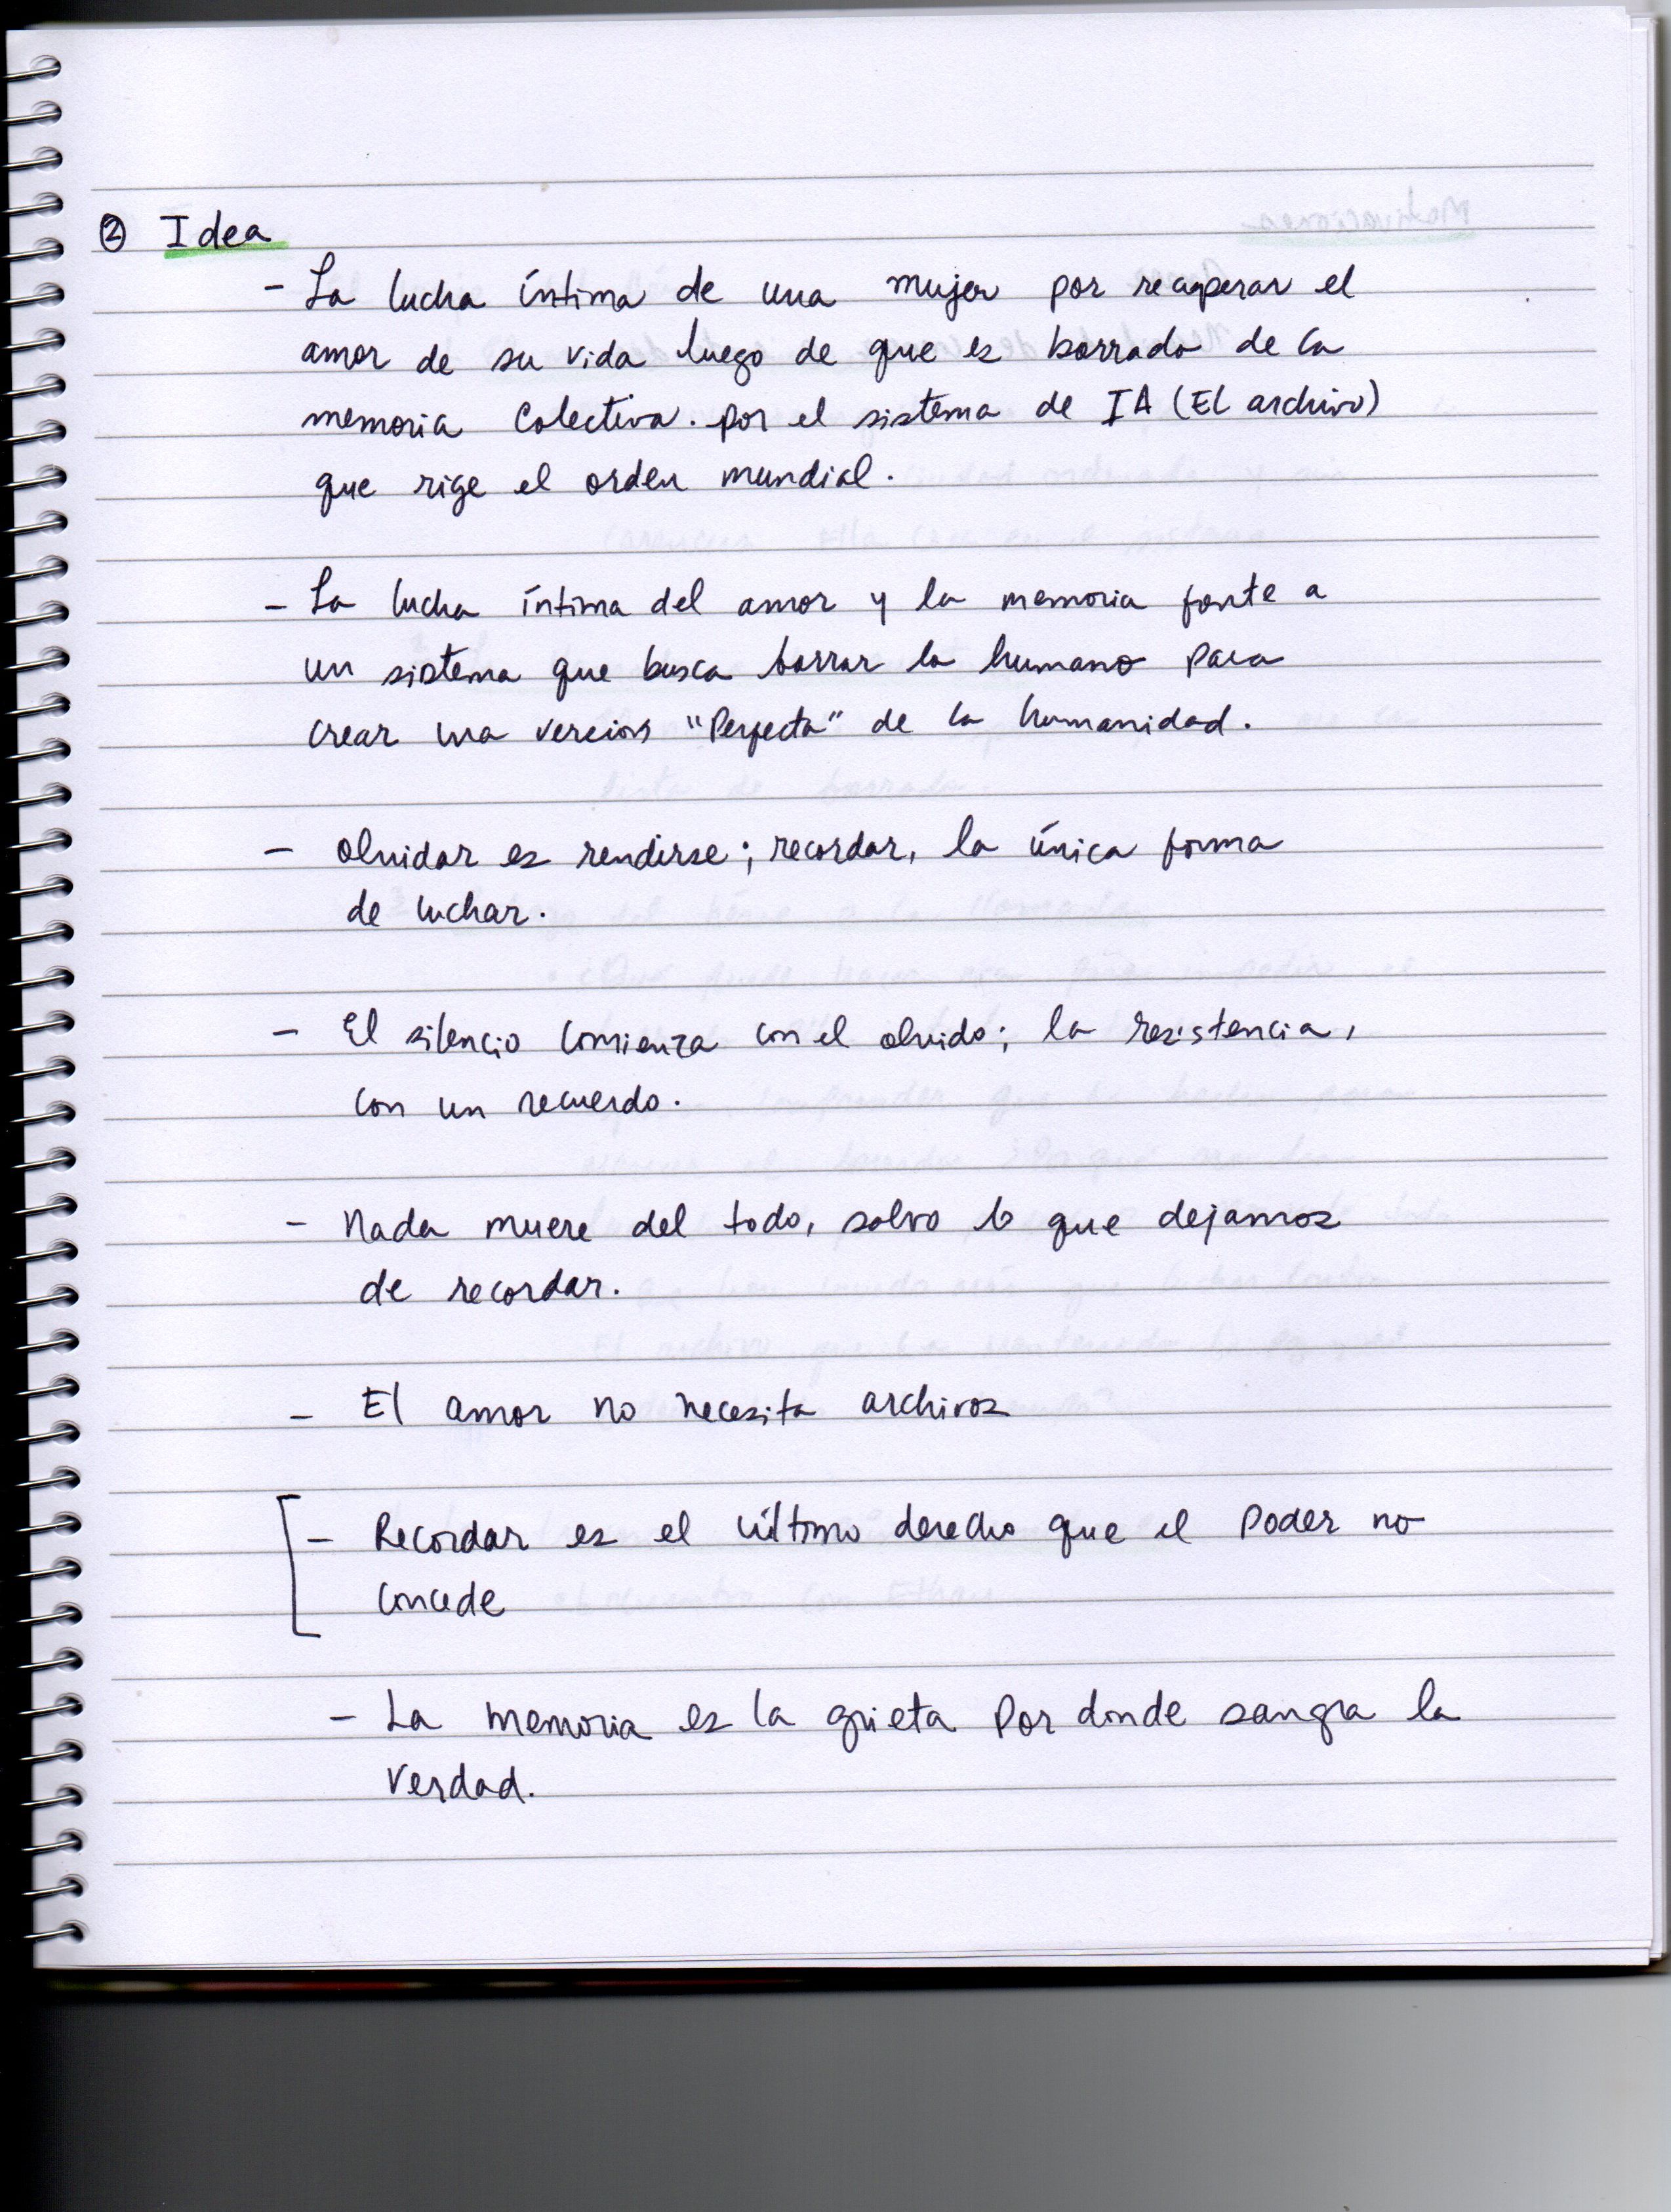 ② Idea
- La lucha íntima de una mujer por recuperar el
amor de su vida luego de que es borrado de la
memoria colectiva. por el sistema de IA (El archivo)
que rige el orden mundial.
- La lucha íntima del amor y la memoria frente a
un sistema que busca borrar lo humano para
crear una version "Perfecta" de la humanidad.
- Olvidar es rendirse; recordar, la única forma
de luchar.
- El silencio comienza con el olvido; la resistencia,
con un recuerdo.
- Nada muere del todo, salvo lo que dejamos
de recordar.
- El amor no necesita archivos
- Recordar es el último derecho que el Poder no
concede
- La memoria es la grieta por donde sangra la
verdad.